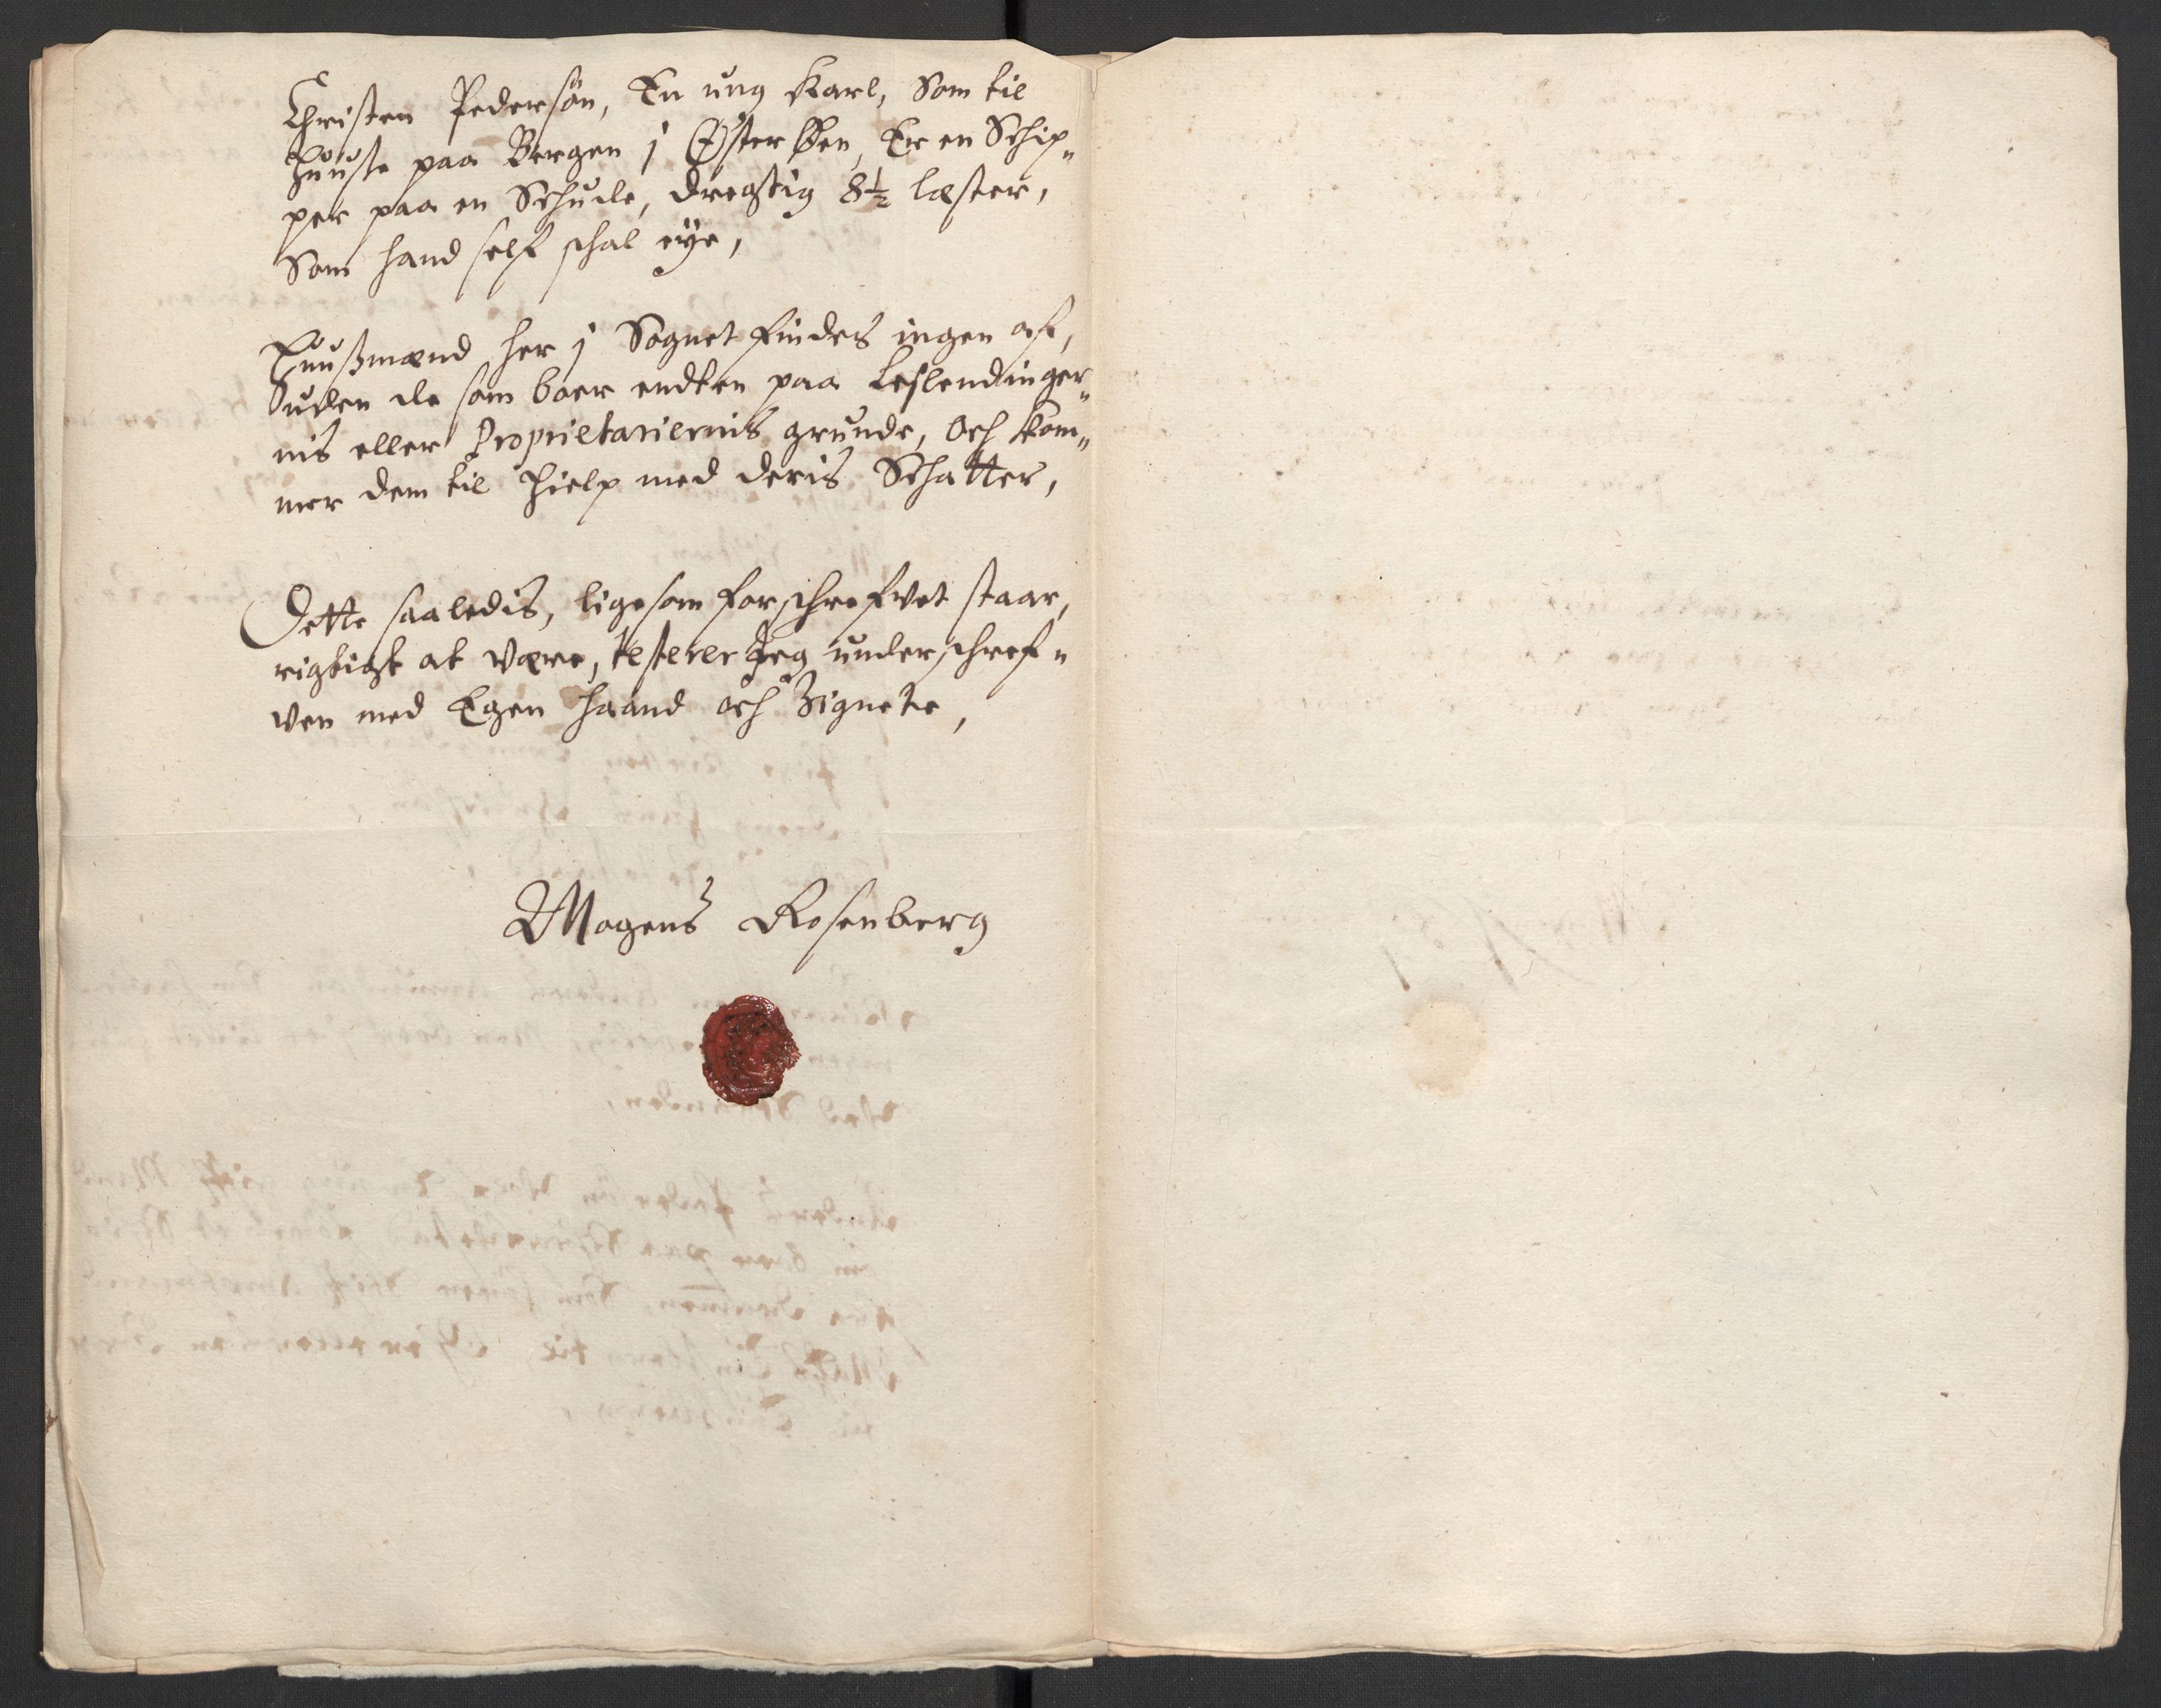 Christen Pedersön, En ung Karl, Som til
Huuse paa Bergen j Øster Øen, Er en Schip„
per paa en Schude, dregtig 8½ læster,
Som hand self schal eye,
Huußmænd her j Sognet findes ingen af,
Uden de som boer endten paa Leylendinger„
nis eller Proprietariernis grunde, Och kom„
mer dem til Hielp med deris Schatter,
Dette saaledis, ligesom forschrefvet staar,
rigtigt at være, testerer Jeg underschref„
ven med Egen haand och Zignete,
Mogens Rosenberg